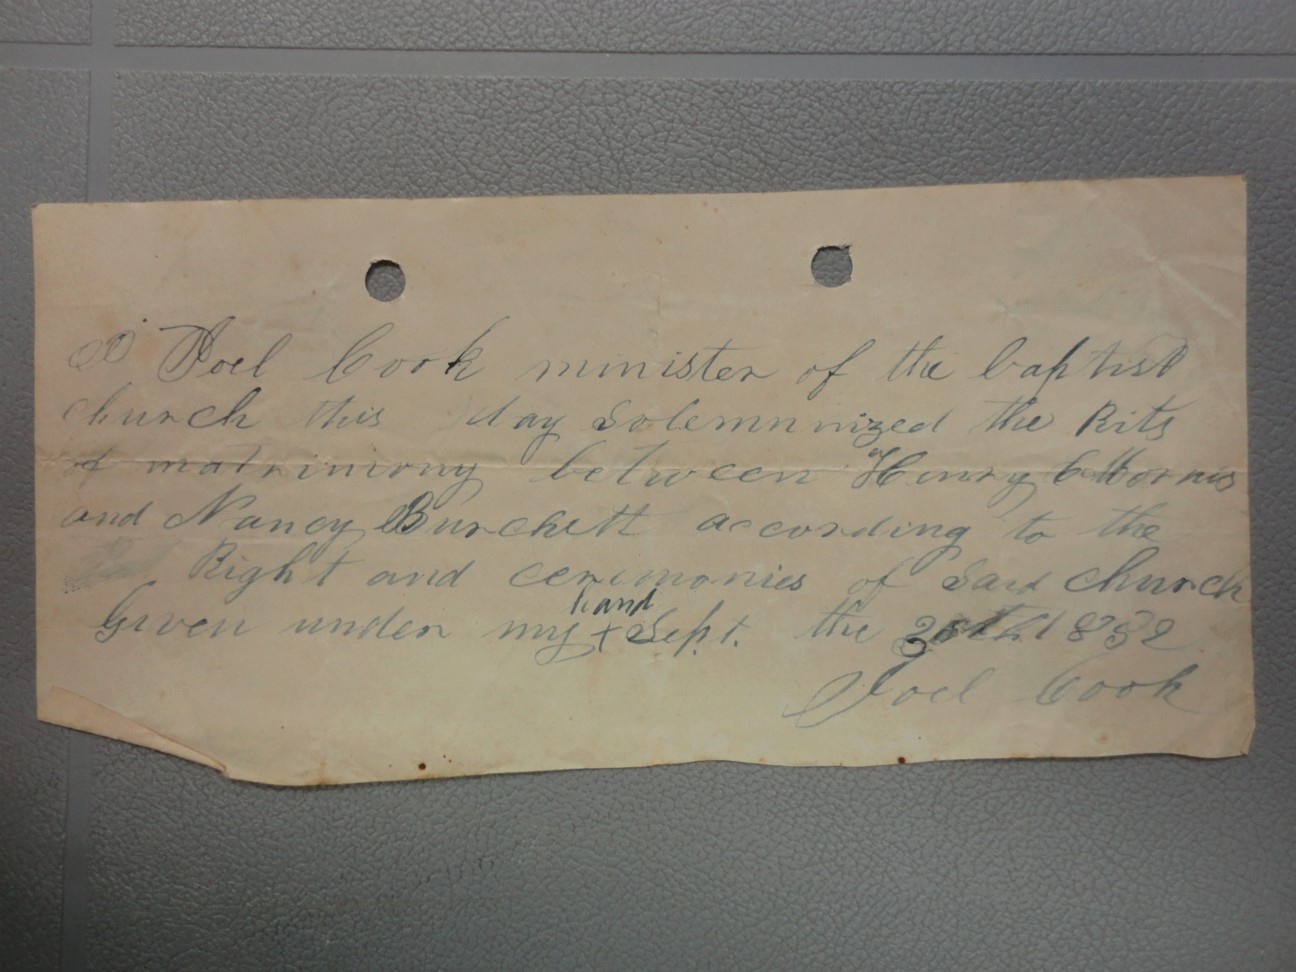 I Joel Cook minister of the baptist
church this day Solemnnized the Rits
of matrimony between Henry C Morris
and Nancy Burchett according to the
Right and ceremonies of Said church
Given under my hand Sept. the
Joel Cook